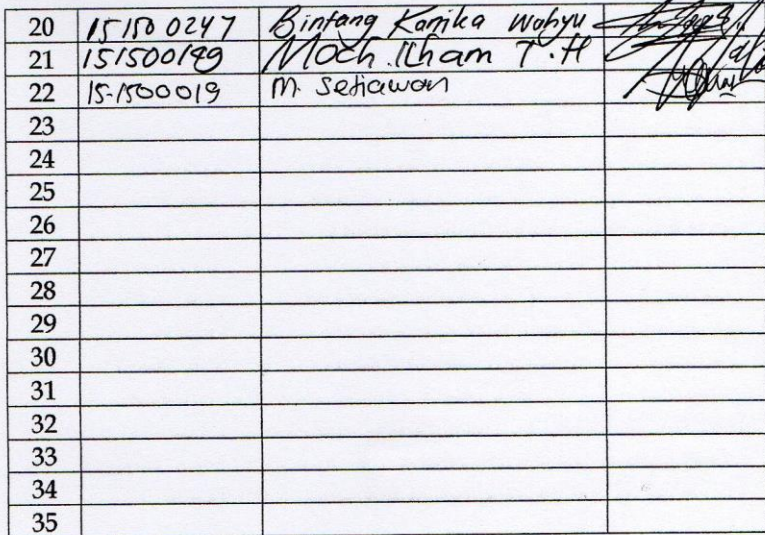 20 151500247 Bintang Kartika Wahyu
21 151500199 Moch. Ilham T.H
22 15-1500019 M. Setiawan
23
24
25
26
27
28
29
30
31
32
33
34
35